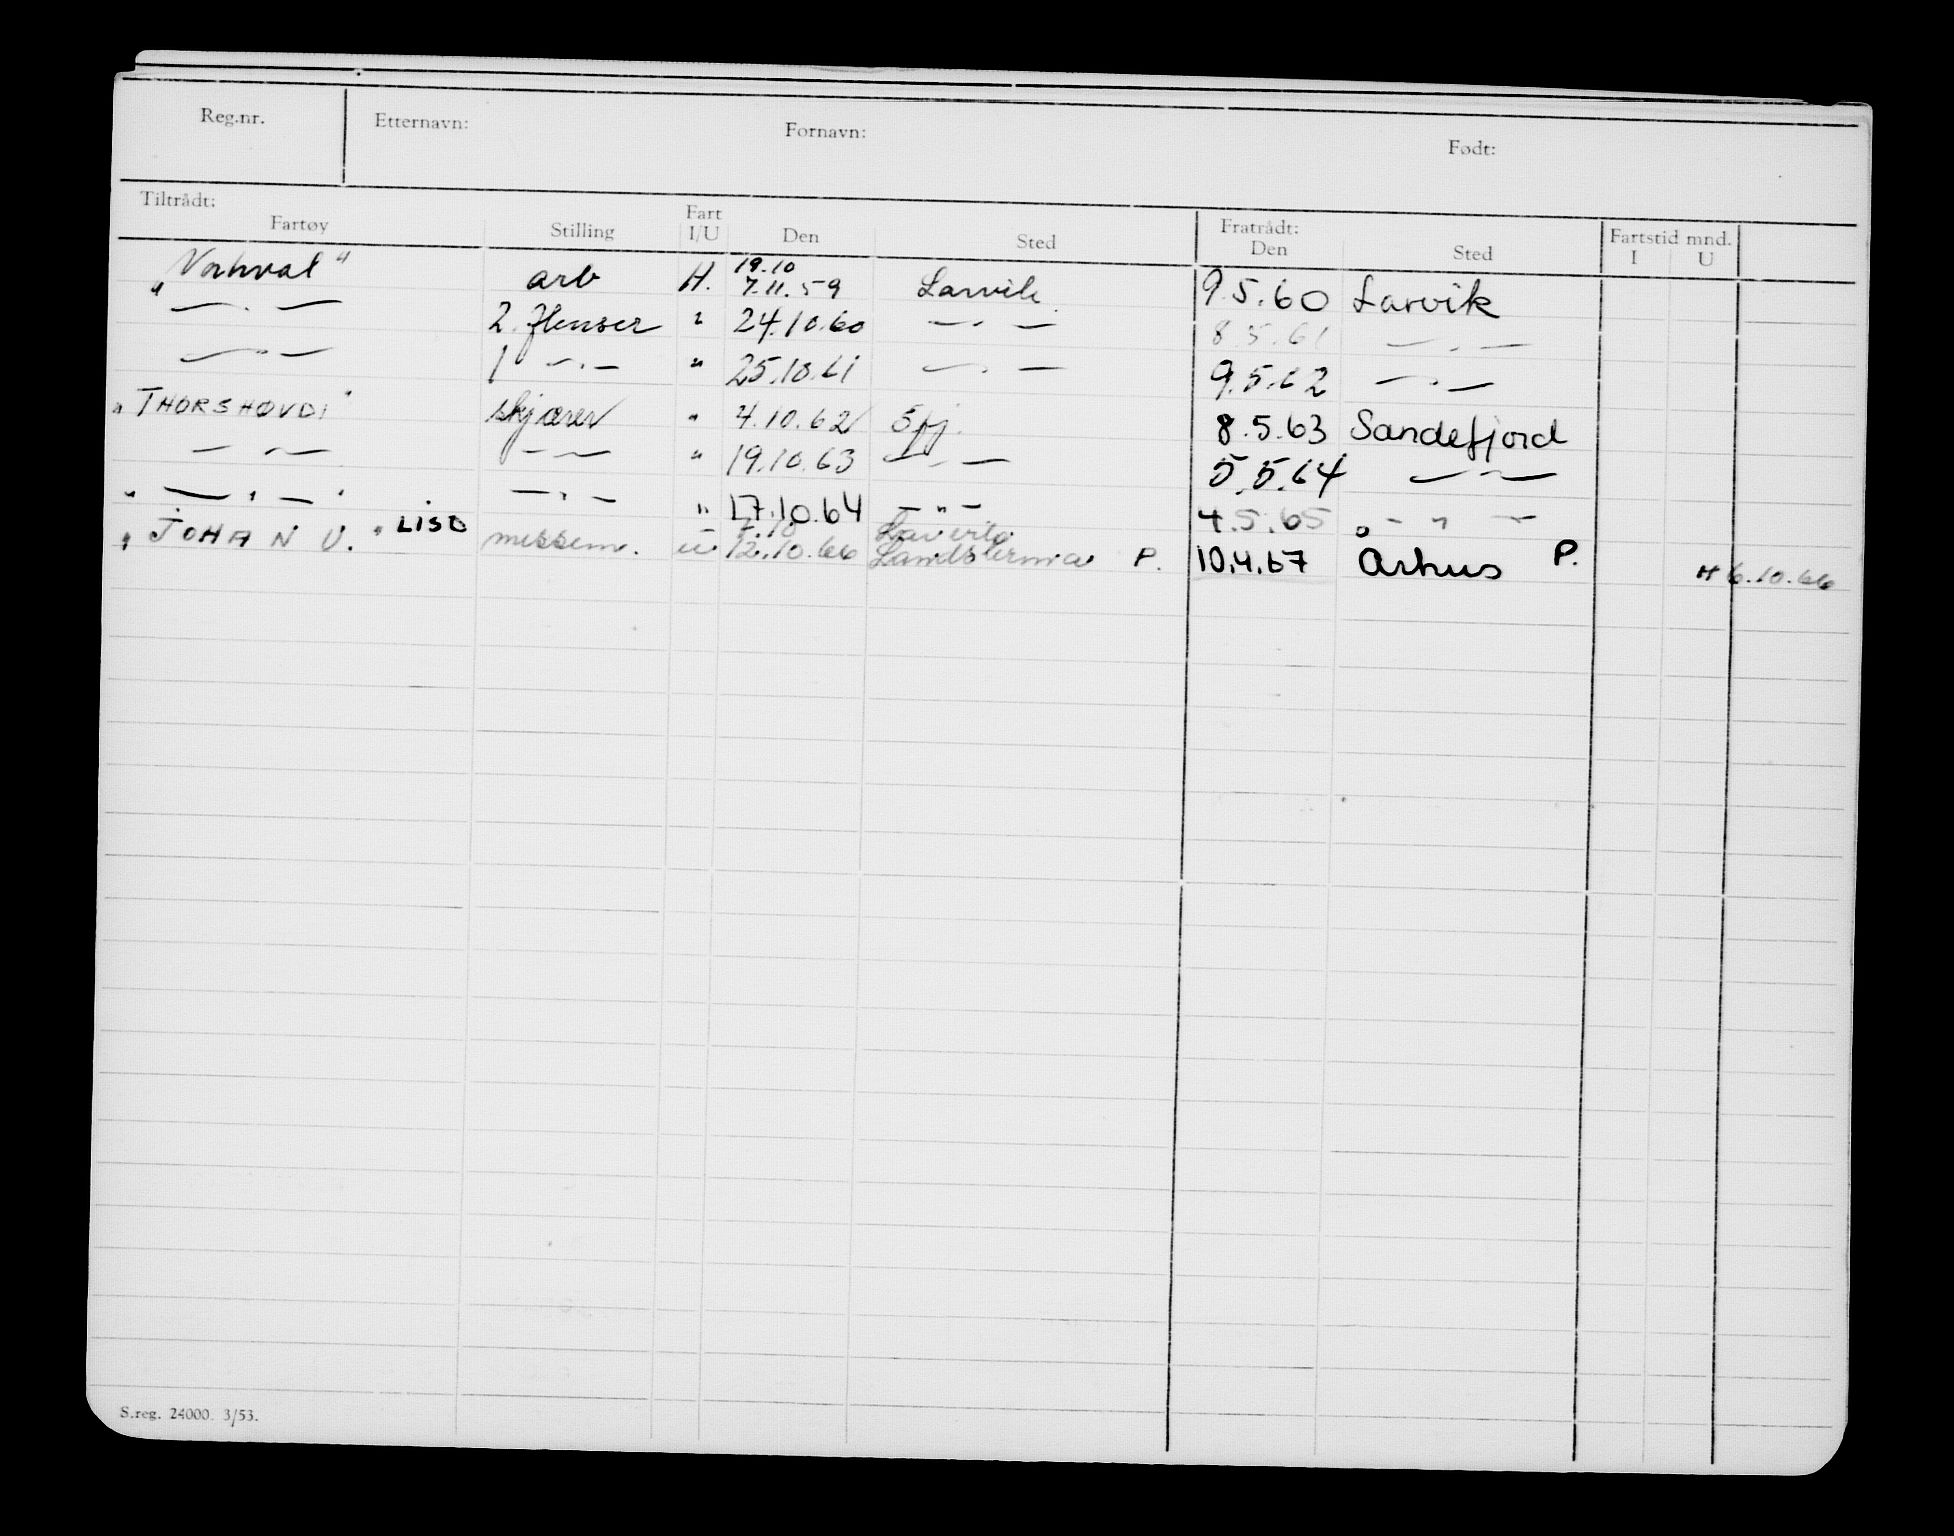 Reg.nr. Etternavn: Fornavn: Født:
Tiltrådt: Fratrådt: Fartstid mnd.
Fartøy Stilling Fart I/U Den Sted Den Sted I U
19.10
"Norhval" arb H. 7.11.59 Larvik 9.5.60 Larvik
— " — 2. flenser " 24.10.60 — " — 8.5.61 — " —
— " — 1 — " — " 25.10.61 — " — 9.5.62 — " —
"THORSHØVDI" skjærer " 4.10.62 Sfj. 8.5.63 Sandefjord
— " — — " — " 19.10.63 — " — 5.5.64 — " —
" — " — " — " — " 17.10.64 — " — 4.5.65 — " —
7.10
"JOHAN U." LISO messem. u 12.10.66 P. 10.4.67 Århus P. H 6.10.66
S.reg. 24000. 3/53.